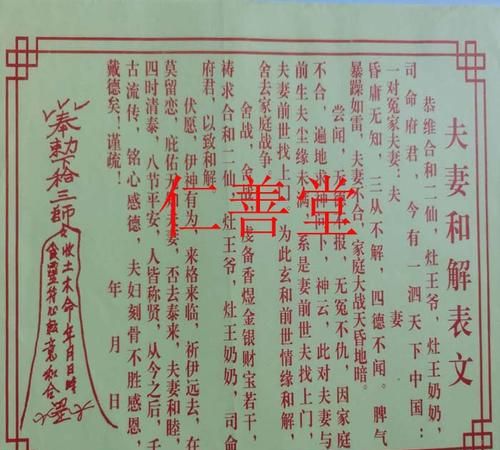 夫妻和解表文
恭维合和二仙,灶王爷,灶王奶奶,
司命府君,今有一泗天下中国:
一对冤家夫妻:夫 妻
昏庸无知,三从不解,四德不闻。脾气
暴躁如雷,夫妻不合,家庭大战天昏地暗。
尝闻,无 不报,无冤不仇,因家庭
不合,遍地求神 下,神云,此对夫妻与
前生夫尘缘未满 系是妻前世夫找上门,
夫妻前世找上 为此玄和前世情缘和解,
舍去家庭战争
舍战,舍战 浅备香煜金银财宝若干,
祷求合和二仙,灶王爷,灶王奶奶,司命
府君,以致和解
伏愿,伊神有为,来格来临,祈伊远去,在
莫留恋,庇佑 和夫妻,否去泰来,夫妻和睦,
四时清泰,八节平安,人皆称贤,从今之后,千
古流传,铭心感德,夫妇刻骨不胜感恩,
戴德矣!谨疏!
年 月 日
奉 下 三師
土木命 年月日時
和合
仁善堂